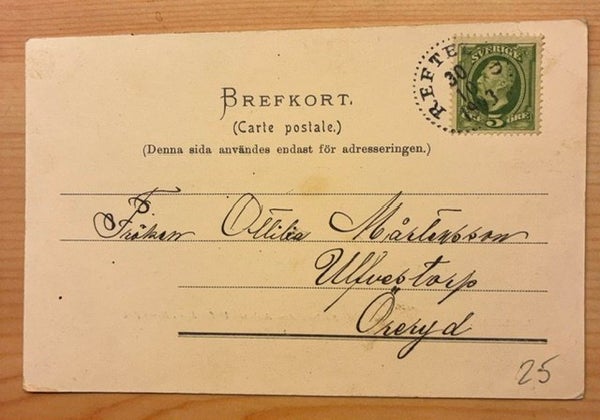 SVERIGE
REFTE
30
10
5 ÖRE
BREFKORT.
(Carte postale.)
(Denna sida användes endast för adresseringen.)
Fröken Ottilia Mårtensson
Ulfvestorp
Öreryd
25